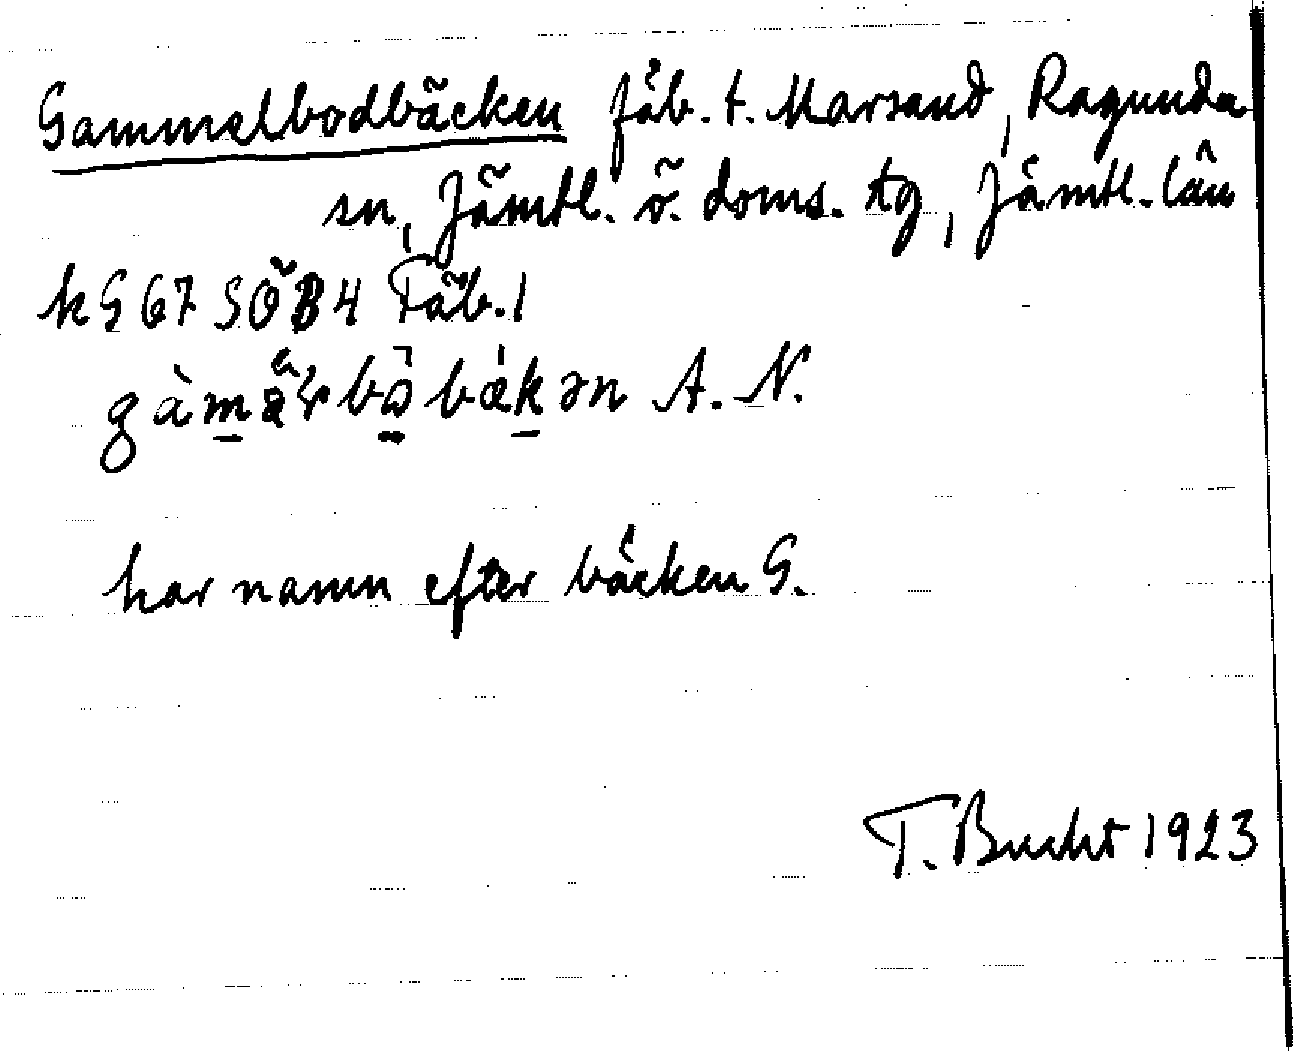 Gammelbodbäcken fäb. t. Marsand, Ragunda
sn, Jämtl. ö. doms. tg, Jämtl. län
k G 67 SÖB4 Fäb. 1
bäkən A. N.
har namn efter bäcken G.
T. Bucht 1923